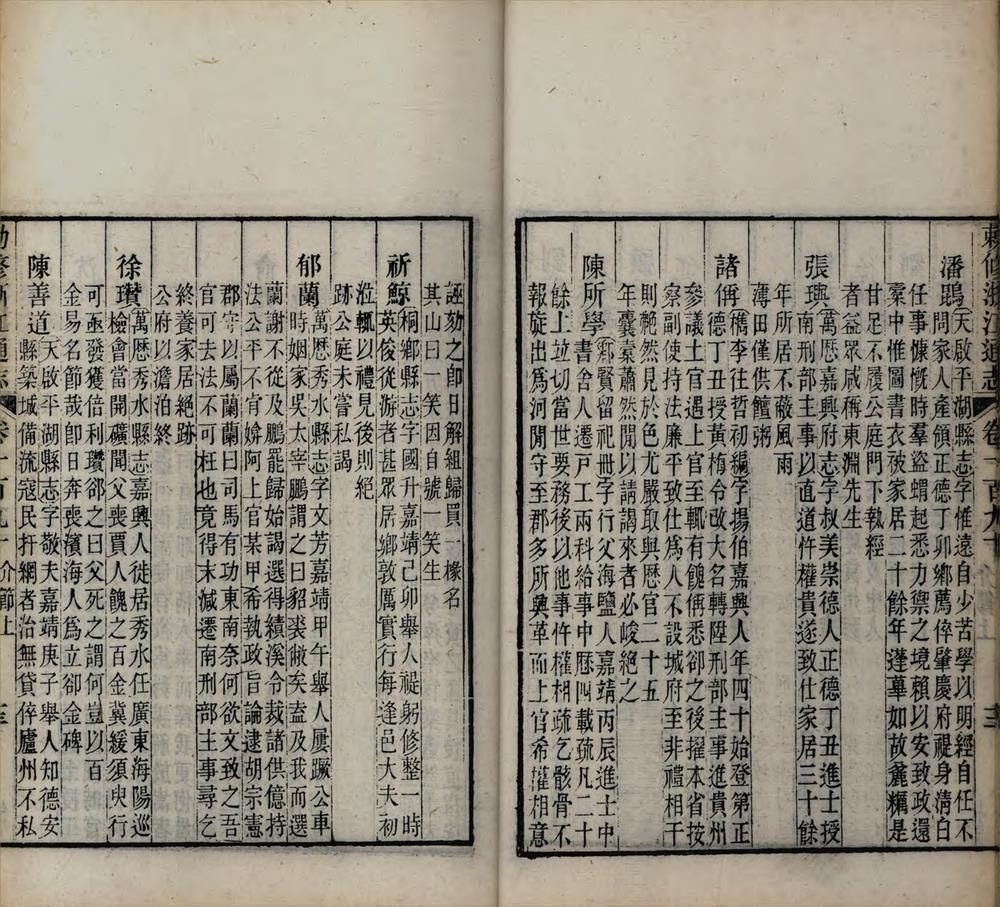 敕修浙江通志 卷一百九十 介節上
潘鵾 天啟平湖縣志字惟遠自少苦學以明經自任不
問家人產領正德丁卯鄉薦倅肇慶府禔身清白
任事慷慨時羣盜蝟起悉力禦之境賴以安致政還
槖中惟圖書衣被家居二十餘年蓬蓽如故麄糲是
甘足不履公庭門下執經
者益眾咸稱東淵先生
張㒜 萬曆嘉興府志字叔美崇德人正德丁丑進士授
南刑部主事以直道忤權貴遂致仕家居三十餘
年所居不蔽風雨
薄田僅供饘粥
諸偁 檇李往哲初編字揚伯嘉興人年四十始登第正
德丁丑授黃梅令改大名轉陞刑部主事進貴州
參議土官遇上官至輒有餽偁悉卻之後擢本省按
察副使持法廉平致仕爲人不設城府至非禮相干
則艴然見於色尤嚴取與歷官二十五
年囊槖蕭然聞以請謁來者必峻絕之
陳所學 鄉賢留祀冊字行父海鹽人嘉靖丙辰進士中
書舍人選戸工兩科給事中歷四載疏凡二十
餘上竝切當世要務後以他事忤權相疏乞骸骨不
報旋出爲河閒守至郡多所興革而上官希權相意
誣劾之卽日解組歸買一椽名
其山曰一笑因自號一笑生
祈鯨 桐鄉縣志字國升嘉靖己卯舉人禔躬修整一時
英俊從游者甚眾居鄉敦厲實行每逢邑大夫初
涖輒以禮見後則絕
跡公庭未嘗私謁
郁蘭 萬曆秀水縣志字文芳嘉靖甲午舉人屢蹶公車
時姻家吳太宰鵬謂之曰貂裘敝矣盍及我而選
蘭謝不從及鵬罷歸始謁選得績溪令裁諸供億持
法公平不肎媕阿上官某甲希執政旨論逮胡宗憲
郡守以屬蘭蘭曰司馬有功東南奈何欲文致之吾
官可去法不可枉也竟得末減遷南刑部主事尋乞
終養家居絕跡
公府以澹泊終
徐瓚 萬曆秀水縣志嘉興人徙居秀水任廣東海陽巡
檢會當開礦聞父喪賈人餽之百金冀緩須臾行
可亟發獲倍利瓚卻之曰父死之謂何豈以百
金易名節哉卽日奔喪濱海人爲立卻金碑
陳善道 天啟平湖縣志字敬夫嘉靖庚子舉人知德安
縣築城備流寇民扞網者治無貸倅廬州不私
敕修浙江通志 卷一百九十 介節上